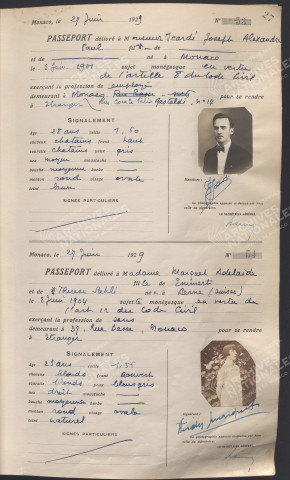 27
Monaco, le 27 Juin 1929 N° 53
PASSEPORT délivré à Monsieur Icardi Joseph Alexandre
Paul fils de
et de né à Monaco
le 2 Juin 1901 sujet monégasque en vertu
de l'article 8 du Code Civil
exerçant la profession de employé
demeurant à Monaco
pour se rendre
à Etranger Rue Comte Félix Gastaldi, N° 14
SIGNALEMENT
Age 28 ans taille 1,60
cheveux châtains front haut
sourcils châtains yeux gris
nez moyen
bouche moyenne barbe
menton rond visage ovale
teint brun
SIGNES PARTICULIERS
Signature :
LE SECRÉTAIRE GÉNÉRAL,
Monaco, le 27 Juin 1929 N° 54
PASSEPORT délivré à Madame Marquet Adelaïde
fille de
et de née à Berne (Suisse)
le 2 Juin 1904 sujette monégasque en vertu de
l'art 12 du Code Civil
exerçant la profession de sans
demeurant à 27, Rue Basse, Monaco pour se rendre
à Etranger
SIGNALEMENT
Age 25 ans taille 1.55
cheveux blonds front
sourcils blonds yeux bleus gris
nez droit
bouche moyenne barbe
menton rond visage ovale
teint naturel
SIGNES PARTICULIERS
Signature :
LE SECRÉTAIRE GÉNÉRAL,